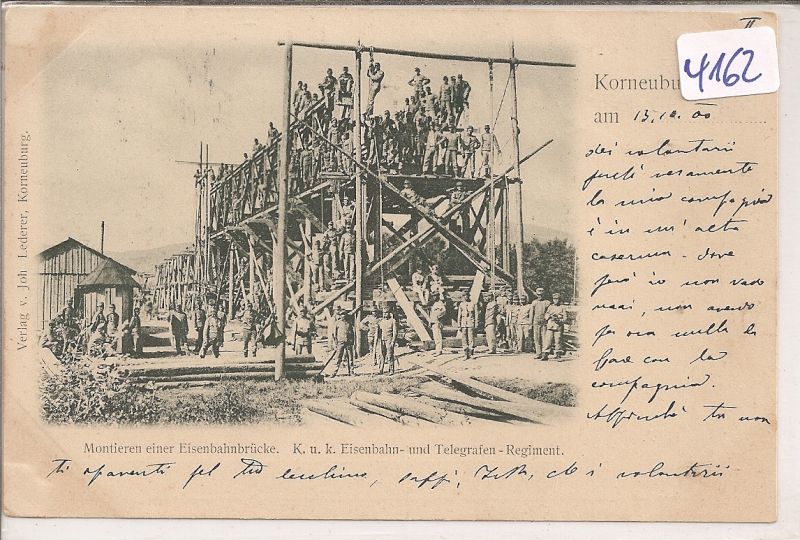 II
4162
Korneubu
am 13.10.00
dei volontarii
perché veramente
la mia compagnia
è in un' alta
caserma - dove
però io non vado
mai, non avendo
per ora nulla da
fare con la
compagnia.
Affinché tu non
Verlag v. Joh Lederer, Korneuburg.
Montieren einer Eisenbahnbrücke. K. u. k. Eisenbahn- und Telegrafen-Regiment.
ti spaventi pel tuo sappi, che i volontarii